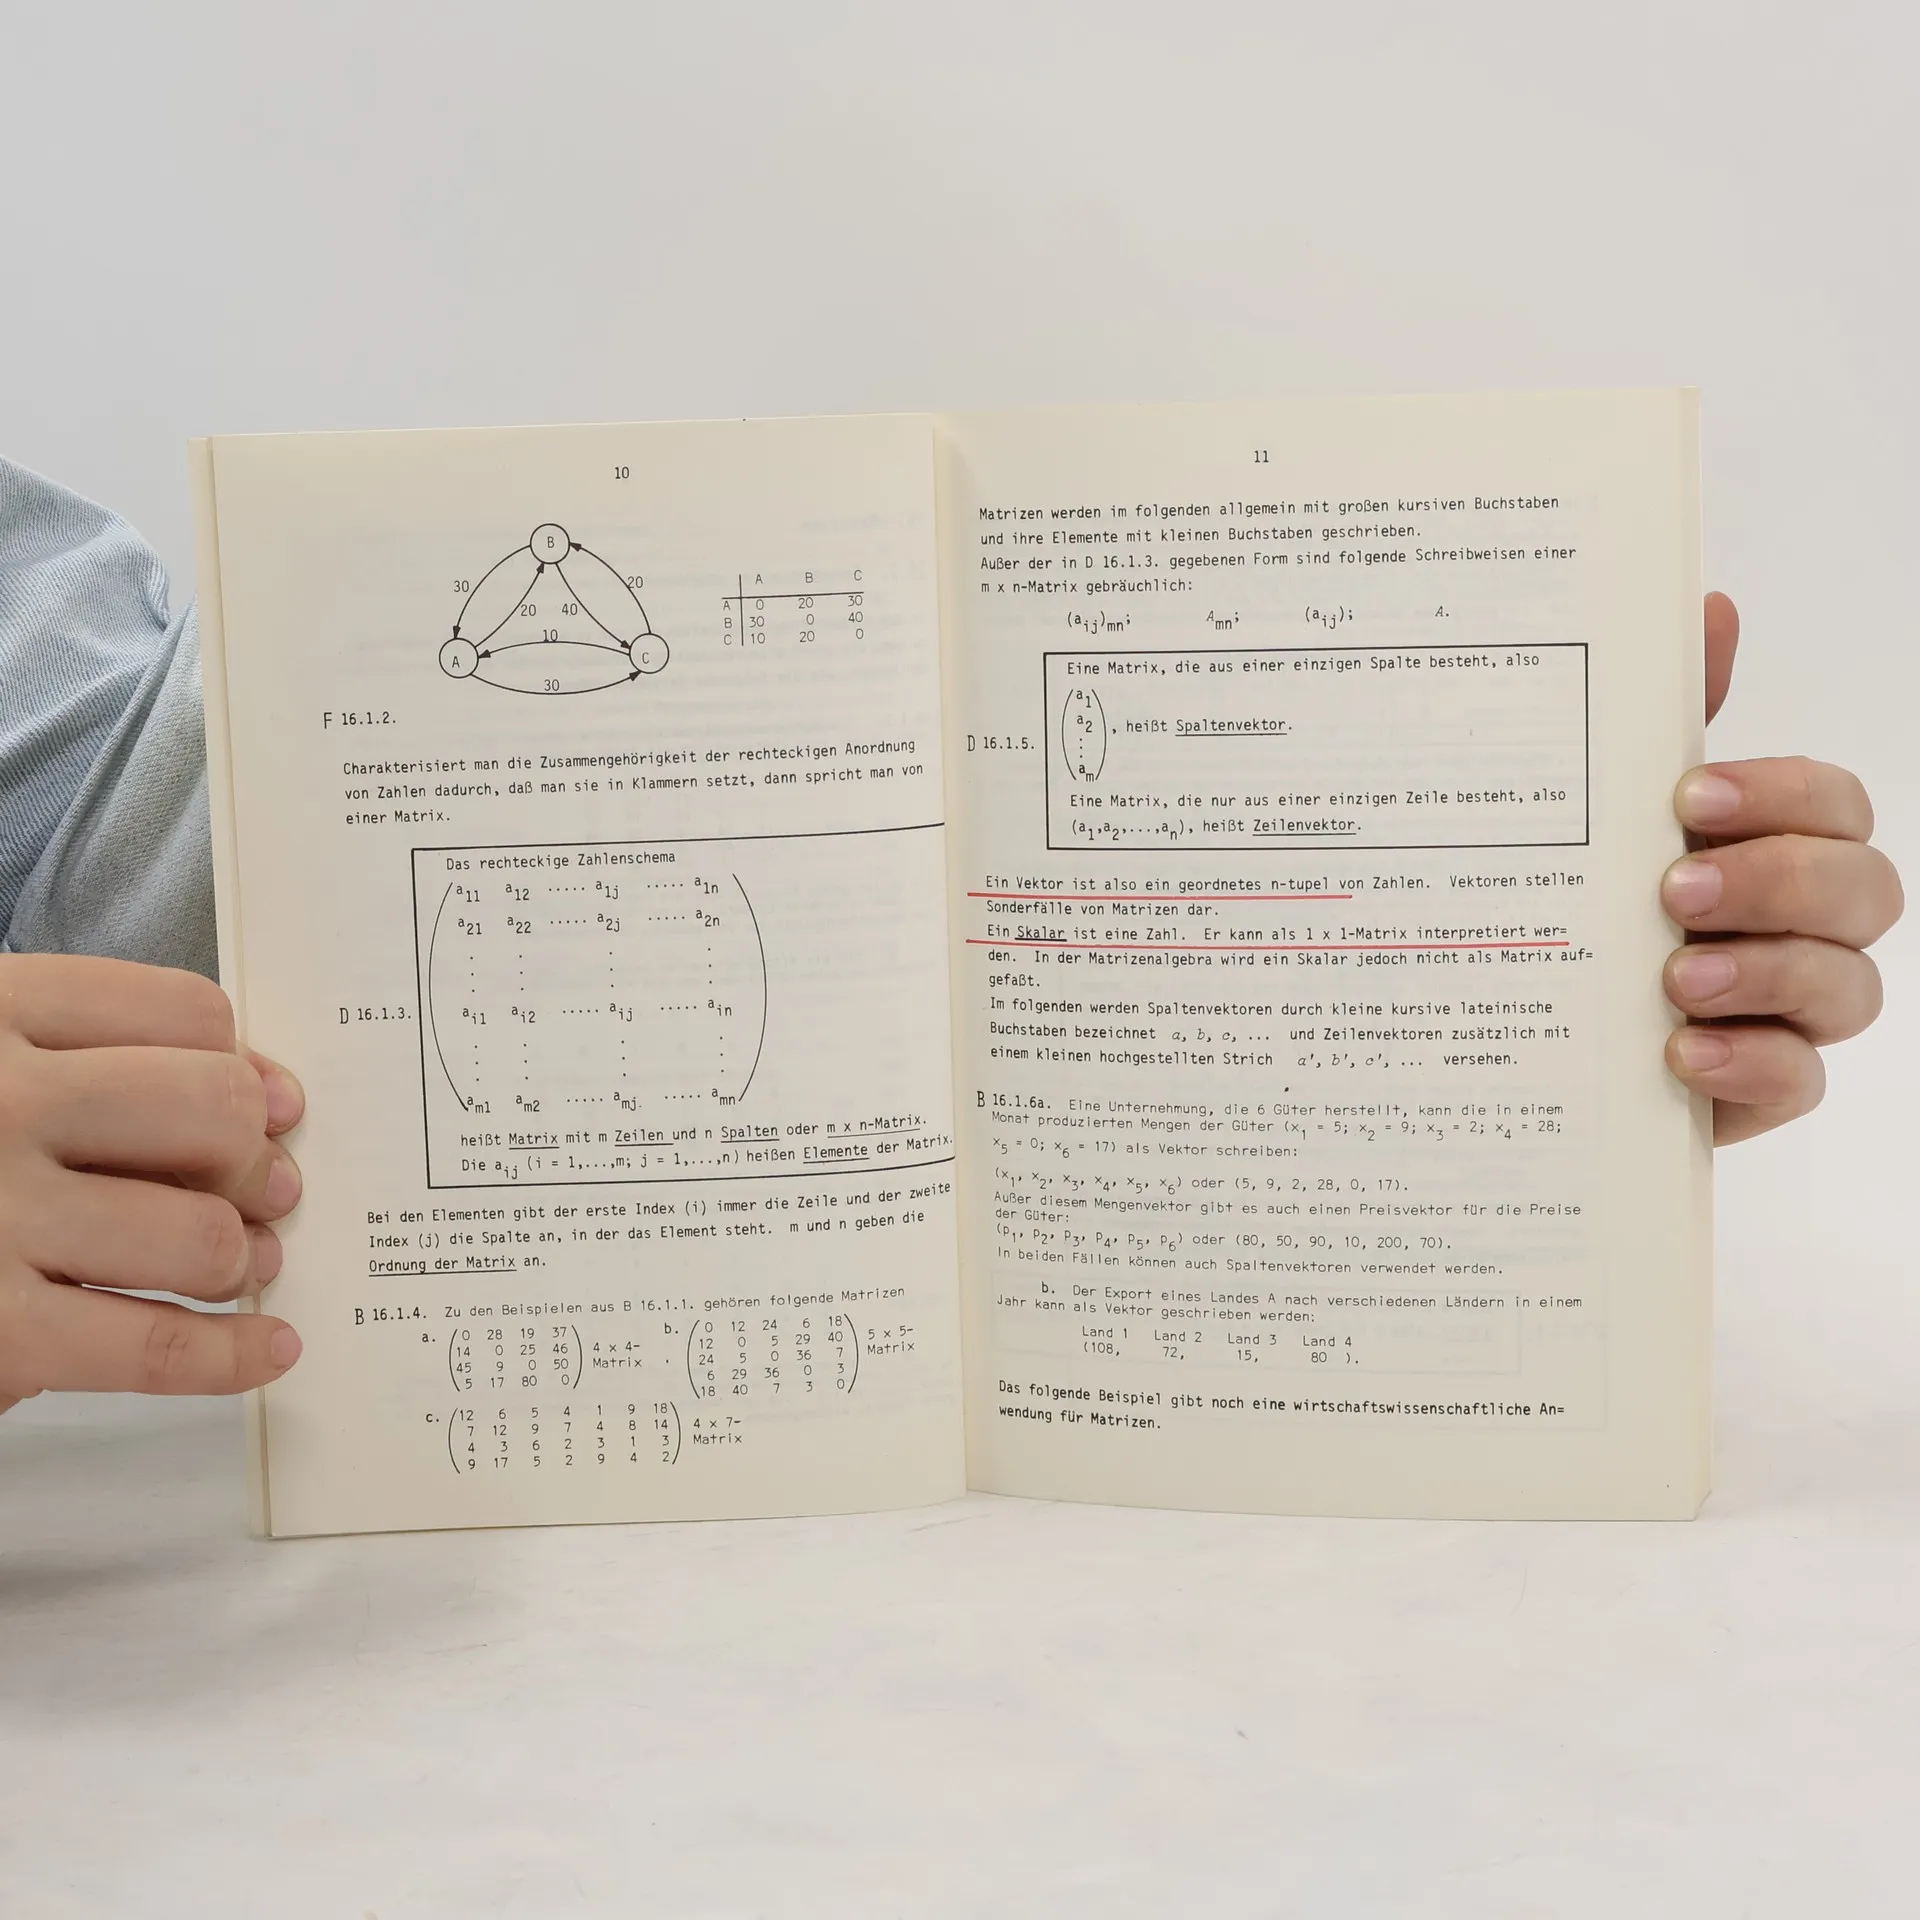 10
B
30
20
20
40
10
A
C
30
A B C
A 0 20 30
B 30 0 40
C 10 20 0
F 16.1.2.
Charakterisiert man die Zusammengehörigkeit der rechteckigen Anordnung
von Zahlen dadurch, daß man sie in Klammern setzt, dann spricht man von
einer Matrix.
Das rechteckige Zahlenschema
a11 a12 ..... a1j ..... a1n
a21 a22 ..... a2j ..... a2n
D 16.1.3.
ai1 ai2 ..... aij ..... ain
am1 am2 ..... amj. ..... amn
heißt Matrix mit m Zeilen und n Spalten oder m x n-Matrix.
Die aij (i = 1,...,m; j = 1,...,n) heißen Elemente der Matrix.
Bei den Elementen gibt der erste Index (i) immer die Zeile und der zweite
Index (j) die Spalte an, in der das Element steht. m und n geben die
Ordnung der Matrix an.
B 16.1.4. Zu den Beispielen aus B 16.1.1. gehören folgende Matrizen
a.
0 28 19 37
14 0 25 46
45 9 0 50
5 17 80 0
4 x 4-
Matrix
b.
0 12 24 6 18
12 0 5 29 40
24 5 0 36 7
6 29 36 0 3
18 40 7 3 0
5 x 5-
Matrix
c.
12 6 5 4 1 9 18
7 12 9 7 4 8 14
4 3 6 2 3 1 3
9 17 5 2 9 4 2
4 x 7-
Matrix
11
Matrizen werden im folgenden allgemein mit großen kursiven Buchstaben
und ihre Elemente mit kleinen Buchstaben geschrieben.
Außer der in D 16.1.3. gegebenen Form sind folgende Schreibweisen einer
m x n-Matrix gebräuchlich:
(aij)mn; Amn; (aij); A.
Eine Matrix, die aus einer einzigen Spalte besteht, also
a1
a2
, heißt Spaltenvektor.
D 16.1.5.
am
Eine Matrix, die nur aus einer einzigen Zeile besteht, also
(a1,a2,...,an), heißt Zeilenvektor.
Ein Vektor ist also ein geordnetes n-tupel von Zahlen. Vektoren stellen
Sonderfälle von Matrizen dar.
Ein Skalar ist eine Zahl. Er kann als 1 x 1-Matrix interpretiert wer=
den. In der Matrizenalgebra wird ein Skalar jedoch nicht als Matrix auf=
gefaßt.
Im folgenden werden Spaltenvektoren durch kleine kursive lateinische
Buchstaben bezeichnet a, b, c, ... und Zeilenvektoren zusätzlich mit
einem kleinen hochgestellten Strich a', b', c', ... versehen.
B 16.1.6a. Eine Unternehmung, die 6 Güter herstellt, kann die in einem
Monat produzierten Mengen der Güter (x1 = 5; x2 = 9; x3 = 2; x4 = 28;
x5 = 0; x6 = 17) als Vektor schreiben:
(x1, x2, x3, x4, x5, x6) oder (5, 9, 2, 28, 0, 17).
Außer diesem Mengenvektor gibt es auch einen Preisvektor für die Preise
der Güter:
(p1, p2, p3, p4, p5, p6) oder (80, 50, 90, 10, 200, 70).
In beiden Fällen können auch Spaltenvektoren verwendet werden.
b. Der Export eines Landes A nach verschiedenen Ländern in einem
Jahr kann als Vektor geschrieben werden:
Land 1 Land 2 Land 3 Land 4
(108, 72, 15, 80 ).
Das folgende Beispiel gibt noch eine wirtschaftswissenschaftliche An=
wendung für Matrizen.